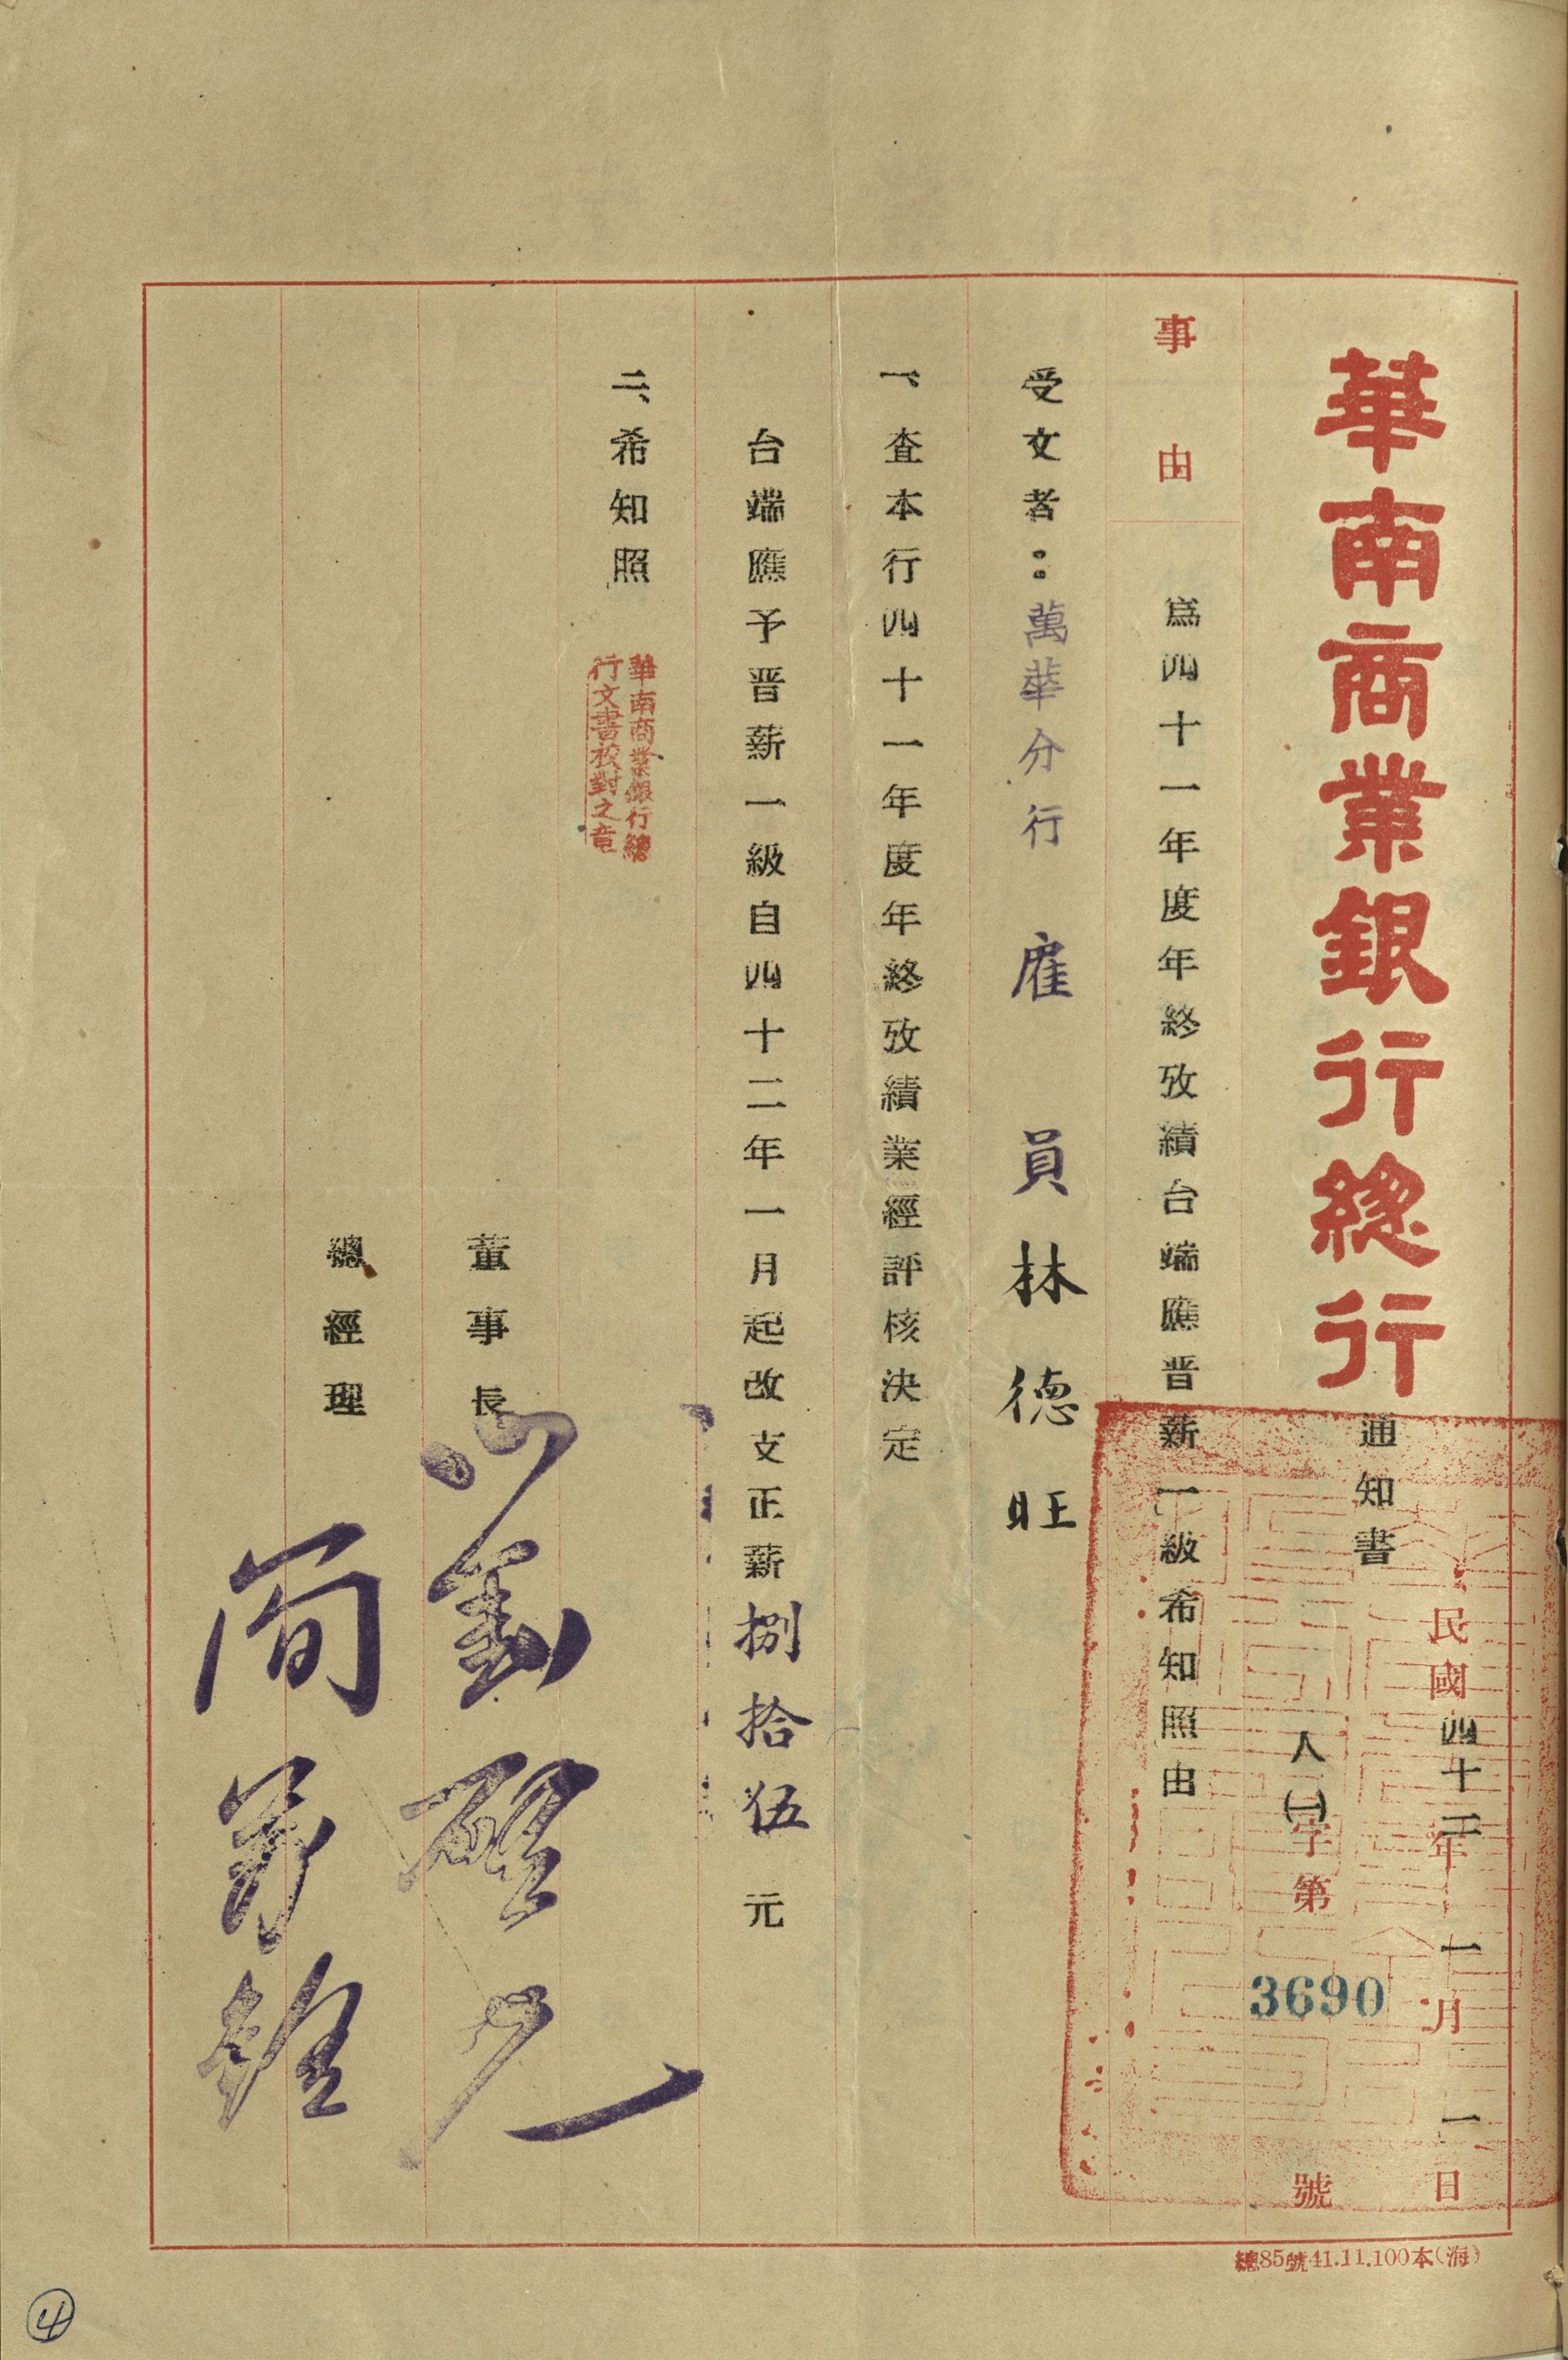 華南商業銀行總行
通知書
民國四十二年一月一日
人㈠字第3690號
事由
爲四十一年度年終攷績台端應晋薪一級希知照由
受文者：萬華分行 雇員林德旺
一、查本行四十一年度年終攷績業經評核決定
台端應予晋薪一級自四十二年一月起改支正薪捌拾伍元
二、希知照
華南商業銀行總
行文書校對之章
董事長 劉啓光
總經理
總85號41.11.100本(海)
4